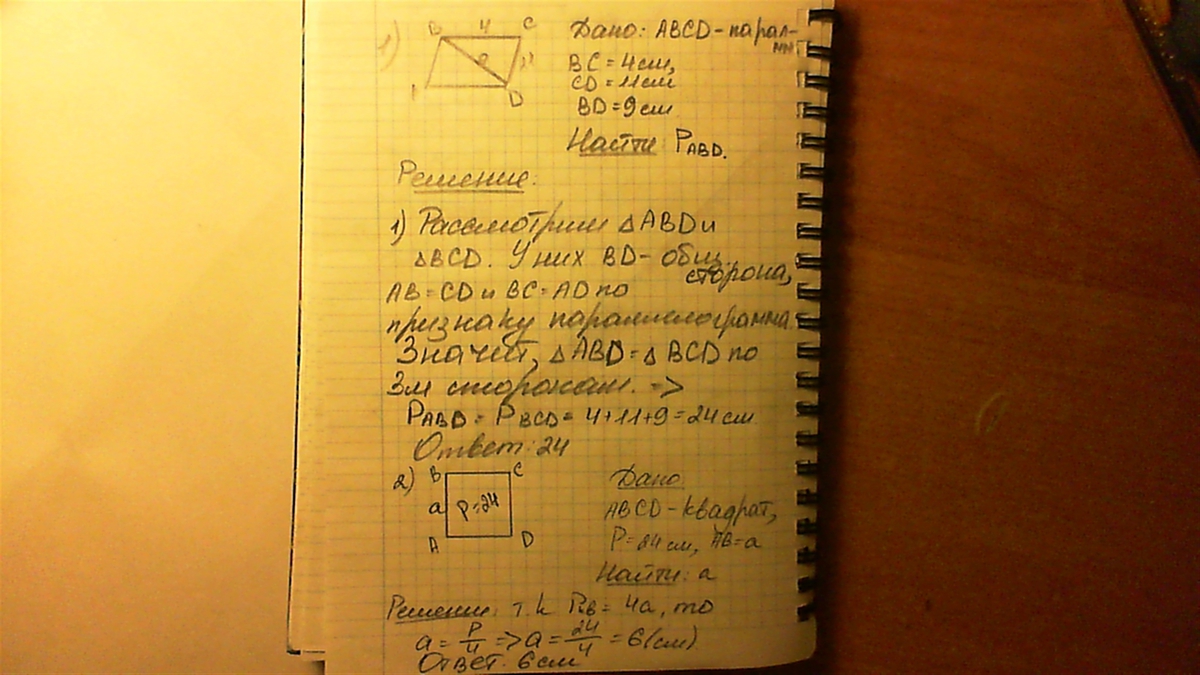 1)
B 4 C
9 11
D
Дано: ABCD - парал-
мм.
BC = 4 см,
CD = 11 см
BD = 9 см
Найти: P ABD.
Решение:
1) Рассмотрим △ABD и
△BCD. У них BD - общ.
сторона,
AB = CD и BC = AD по
признаку параллелограмма.
Значит, △ABD = △BCD по
3м сторонам. =>
P ABD = P BCD = 4+11+9 = 24 см
Ответ: 24
2)
B C
a P=24
A D
Дано:
ABCD - квадрат,
P = 24 см, AB = a
Найти: a
Решение: т.к Pкв = 4a, то
a = P/4 => a = 24/4 = 6 (см)
Ответ: 6 см